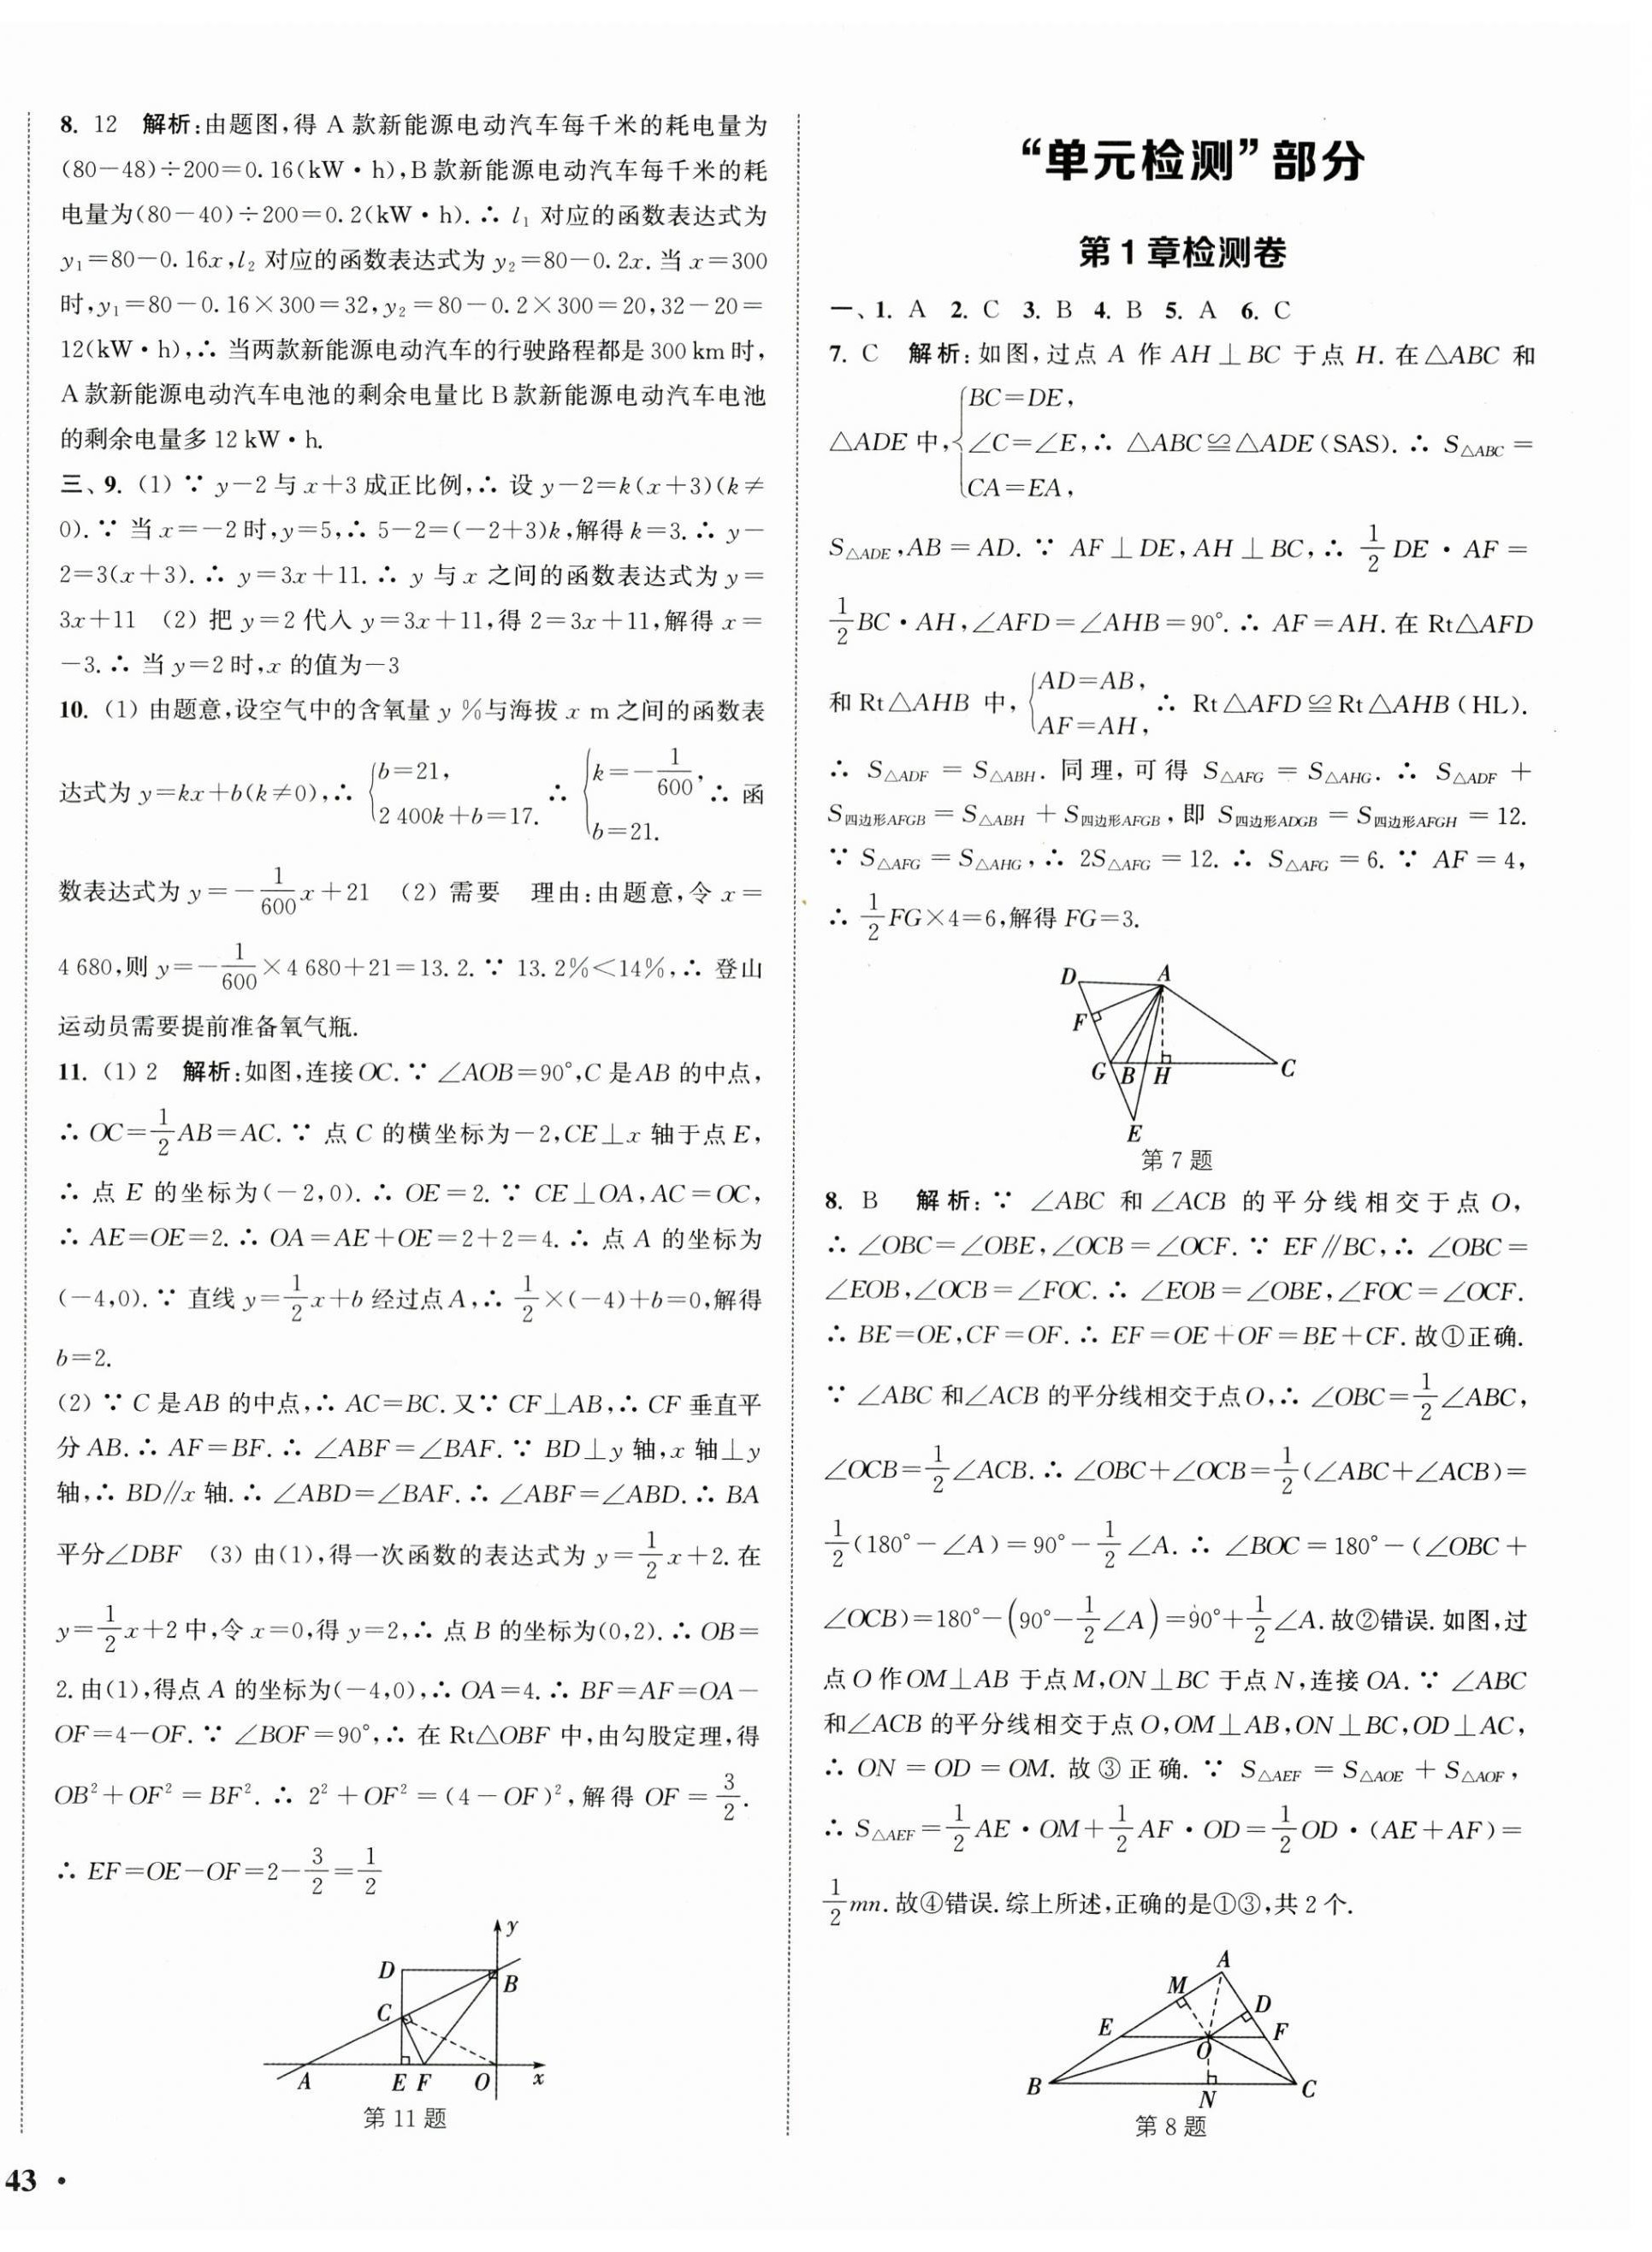 8. 12 解析:由题图,得 A 款新能源电动汽车每千米的耗电量为
(80-48)÷200=0.16(kW·h),B款新能源电动汽车每千米的耗
电量为(80-40)÷200=0.2(kW·h).∴ l₁ 对应的函数表达式为
y₁=80-0.16x,l₂ 对应的函数表达式为 y₂=80-0.2x.当 x=300
时,y₁=80-0.16×300=32,y₂=80-0.2×300=20,32-20=
12(kW·h),∴ 当两款新能源电动汽车的行驶路程都是 300 km 时,
A 款新能源电动汽车电池的剩余电量比 B 款新能源电动汽车电池
的剩余电量多 12 kW·h.
三、9. (1) ∵ y-2 与 x+3 成正比例,∴ 设 y-2=k(x+3)(k≠
0).∵ 当 x=-2 时,y=5,∴ 5-2=(-2+3)k,解得 k=3.∴ y-
2=3(x+3).∴ y=3x+11.∴ y 与 x 之间的函数表达式为 y=
3x+11 (2) 把 y=2 代入 y=3x+11,得 2=3x+11,解得 x=
-3.∴ 当 y=2 时,x 的值为-3
10. (1) 由题意,设空气中的含氧量 y %与海拔 x m 之间的函数表
达式为 y=kx+b(k≠0),∴ {b=21, 2 400k+b=17. ∴ {k=-1/600, b=21. ∴ 函
数表达式为 y=-1/600x+21 (2) 需要 理由:由题意,令 x=
4 680,则 y=-1/600×4 680+21=13.2.∵ 13.2%<14%,∴ 登山
运动员需要提前准备氧气瓶.
11. (1) 2 解析:如图,连接 OC.∵ ∠AOB=90°,C 是 AB 的中点,
∴ OC=1/2AB=AC.∵ 点 C 的横坐标为-2,CE⊥x 轴于点 E,
∴ 点 E 的坐标为(-2,0).∴ OE=2.∵ CE⊥OA,AC=OC,
∴ AE=OE=2.∴ OA=AE+OE=2+2=4.∴ 点 A 的坐标为
(-4,0).∵ 直线 y=1/2x+b 经过点 A,∴ 1/2×(-4)+b=0,解得
b=2.
(2) ∵ C 是 AB 的中点,∴ AC=BC.又∵ CF⊥AB,∴ CF 垂直平
分 AB.∴ AF=BF.∴ ∠ABF=∠BAF.∵ BD⊥y 轴,x 轴⊥y
轴,∴ BD∥x 轴.∴ ∠ABD=∠BAF.∴ ∠ABF=∠ABD.∴ BA
平分∠DBF (3) 由(1),得一次函数的表达式为 y=1/2x+2.在
y=1/2x+2 中,令 x=0,得 y=2,∴ 点 B 的坐标为(0,2).∴ OB=
2.由(1),得点 A 的坐标为(-4,0),∴ OA=4.∴ BF=AF=OA-
OF=4-OF.∵ ∠BOF=90°,∴ 在 Rt△OBF 中,由勾股定理,得
OB²+OF²=BF².∴ 2²+OF²=(4-OF)²,解得 OF=3/2.
∴ EF=OE-OF=2-3/2=1/2
y
D
B
C
A E F O x
第 11 题
43 ·
“单元检测”部分
第 1 章检测卷
一、1. A 2. C 3. B 4. B 5. A 6. C
7. C 解析:如图,过点 A 作 AH⊥BC 于点 H.在△ABC 和
△ADE 中,{BC=DE, ∠C=∠E, CA=EA, ∴ △ABC≌△ADE(SAS).∴ S△ABC=
S△ADE,AB=AD.∵ AF⊥DE,AH⊥BC,∴ 1/2DE·AF=
1/2BC·AH,∠AFD=∠AHB=90°.∴ AF=AH.在 Rt△AFD
和 Rt△AHB 中,{AD=AB, AF=AH, ∴ Rt△AFD≌Rt△AHB(HL).
∴ S△ADF=S△ABH.同理,可得 S△AFG=S△AHG.∴ S△ADF+
S四边形AFGB=S△ABH+S四边形AFGB,即 S四边形ADGB=S四边形AFGH=12.
∵ S△AFG=S△AHG,∴ 2S△AFG=12.∴ S△AFG=6.∵ AF=4,
∴ 1/2FG×4=6,解得 FG=3.
D A
F
G B H C
E
第 7 题
8. B 解析:∵ ∠ABC 和∠ACB 的平分线相交于点 O,
∴ ∠OBC=∠OBE,∠OCB=∠OCF.∵ EF∥BC,∴ ∠OBC=
∠EOB,∠OCB=∠FOC.∴ ∠EOB=∠OBE,∠FOC=∠OCF.
∴ BE=OE,CF=OF.∴ EF=OE+OF=BE+CF.故①正确.
∵ ∠ABC 和∠ACB 的平分线相交于点 O,∴ ∠OBC=1/2∠ABC,
∠OCB=1/2∠ACB.∴ ∠OBC+∠OCB=1/2(∠ABC+∠ACB)=
1/2(180°-∠A)=90°-1/2∠A.∴ ∠BOC=180°-(∠OBC+
∠OCB)=180°-(90°-1/2∠A)=90°+1/2∠A.故②错误.如图,过
点 O 作 OM⊥AB 于点 M,ON⊥BC 于点 N,连接 OA.∵ ∠ABC
和∠ACB 的平分线相交于点 O,OM⊥AB,ON⊥BC,OD⊥AC,
∴ ON=OD=OM.故③正确.∵ S△AEF=S△AOE+S△AOF,
∴ S△AEF=1/2AE·OM+1/2AF·OD=1/2OD·(AE+AF)=
1/2mn.故④错误.综上所述,正确的是①③,共 2 个.
A
M
D
E F
O
B N C
第 8 题